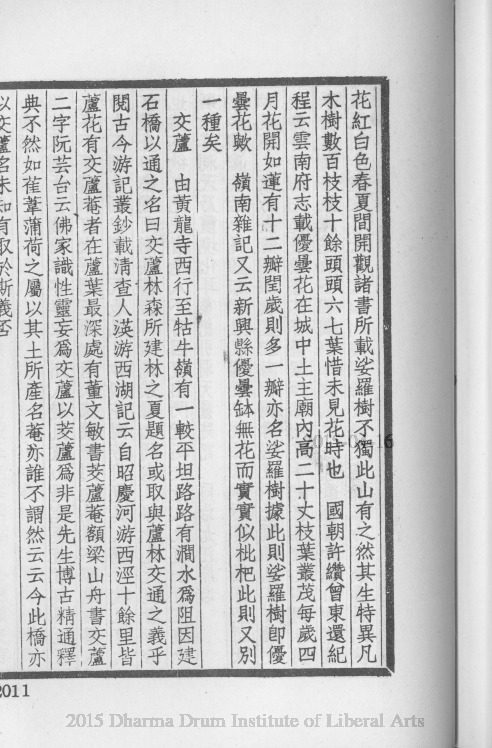 花紅白色春夏間開觀諸書所載娑羅樹不獨此山有之然其生特異凡
木樹數百枝枝十餘頭頭六七葉惜未見花時也　國朝許纘曾東還紀
程云雲南府志載優曇花在城中土主廟內高二十丈枝葉叢茂每歲四
月花開如蓮有十二瓣閏歲則多一瓣亦名娑羅樹據此則娑羅樹卽優
曇花歟　嶺南雜記又云新興縣優曇缽無花而實實似枇杷此則又別
一種矣
交蘆　由黃龍寺西行至牯牛嶺有一較平坦路路有澗水爲阻因建
石橋以通之名曰交蘆林森所建林之夏題名或取與蘆林交通之義乎
閱古今游記叢鈔載清查人渶游西湖記云自昭慶河游西溼十餘里皆
蘆花有交蘆菴者在蘆葉最深處有董文敏書茭蘆菴額梁山舟書交蘆
二字阮芸台云佛家識性靈妄爲交蘆以茭蘆爲非是先生博古精通釋
典不然如萑葦蒲荷之屬以其土所產名菴亦誰不謂然云云今此橋亦
以交蘆名未知有取於斯義否
2011
2015 Dharma Drum Institute of Liberal Arts